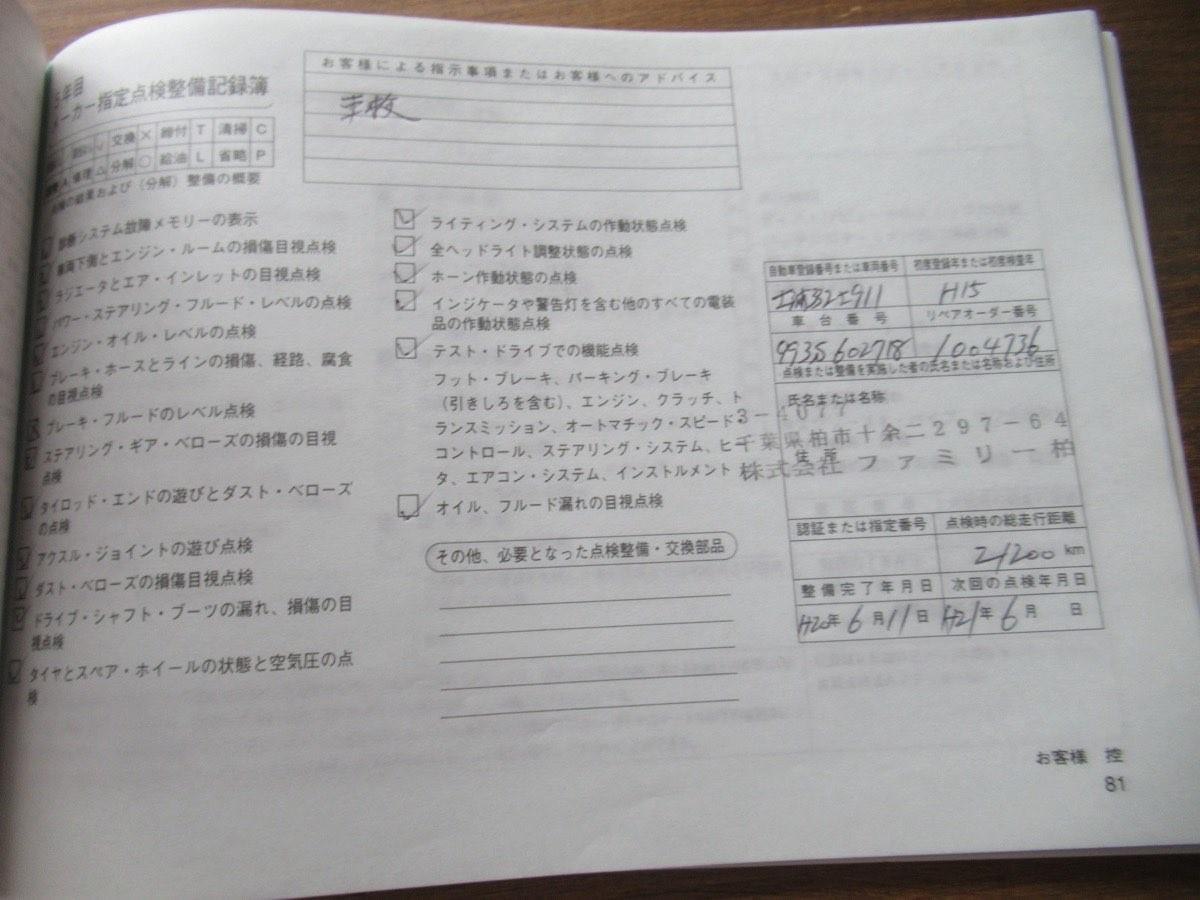 5年目
メーカー指定点検整備記録簿
交換 × 締付 T 清掃 C
修理 △ 分解 ○ 給油 L 省略 P
点検の結果および（分解）整備の概要
診断システム故障メモリーの表示
車両下側とエンジン・ルームの損傷目視点検
ラジエータとエア・インレットの目視点検
パワー・ステアリング・フルード・レベルの点検
エンジン・オイル・レベルの点検
ブレーキ・ホースとラインの損傷、経路、腐食
の目視点検
ブレーキ・フルードのレベル点検
ステアリング・ギア・ベローズの損傷の目視
点検
タイロッド・エンドの遊びとダスト・ベローズ
の点検
アクスル・ジョイントの遊び点検
ダスト・ベローズの損傷目視点検
ドライブ・シャフト・ブーツの漏れ、損傷の目
視点検
タイヤとスペア・ホイールの状態と空気圧の点
検
お客様による指示事項またはお客様へのアドバイス
車検
ライティング・システムの作動状態点検
全ヘッドライト調整状態の点検
ホーン作動状態の点検
インジケータや警告灯を含む他のすべての電装
品の作動状態点検
テスト・ドライブでの機能点検
フット・ブレーキ、パーキング・ブレーキ
（引きしろを含む）、エンジン、クラッチ、ト
ランスミッション、オートマチック・スピード・
コントロール、ステアリング・システム、ヒー
タ、エアコン・システム、インストルメント
オイル、フルード漏れの目視点検
その他、必要となった点検整備・交換部品
自動車登録番号または車両番号 初度登録年または初度検査年
H15
車台番号 リペアオーダー番号
993S602718 1004736
点検または整備を実施した者の氏名または名称および住所
氏名または名称
3-4077
千葉県柏市十余二297-64
住所
株式会社ファミリー柏
認証または指定番号 点検時の総走行距離
21200 km
整備完了年月日 次回の点検年月日
H20年6月11日 H21年6月 日
お客様 控
81